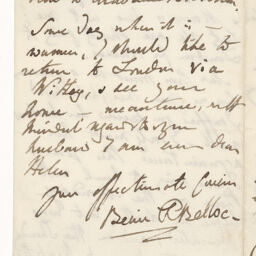 Some day when it is -
warmer, I should like to
return to London via
Witley, & see your
home - meantime, with
kindest regards to your
husband I am ever dear
Helen
your affectionate Cousin
Bessie R Belloc -